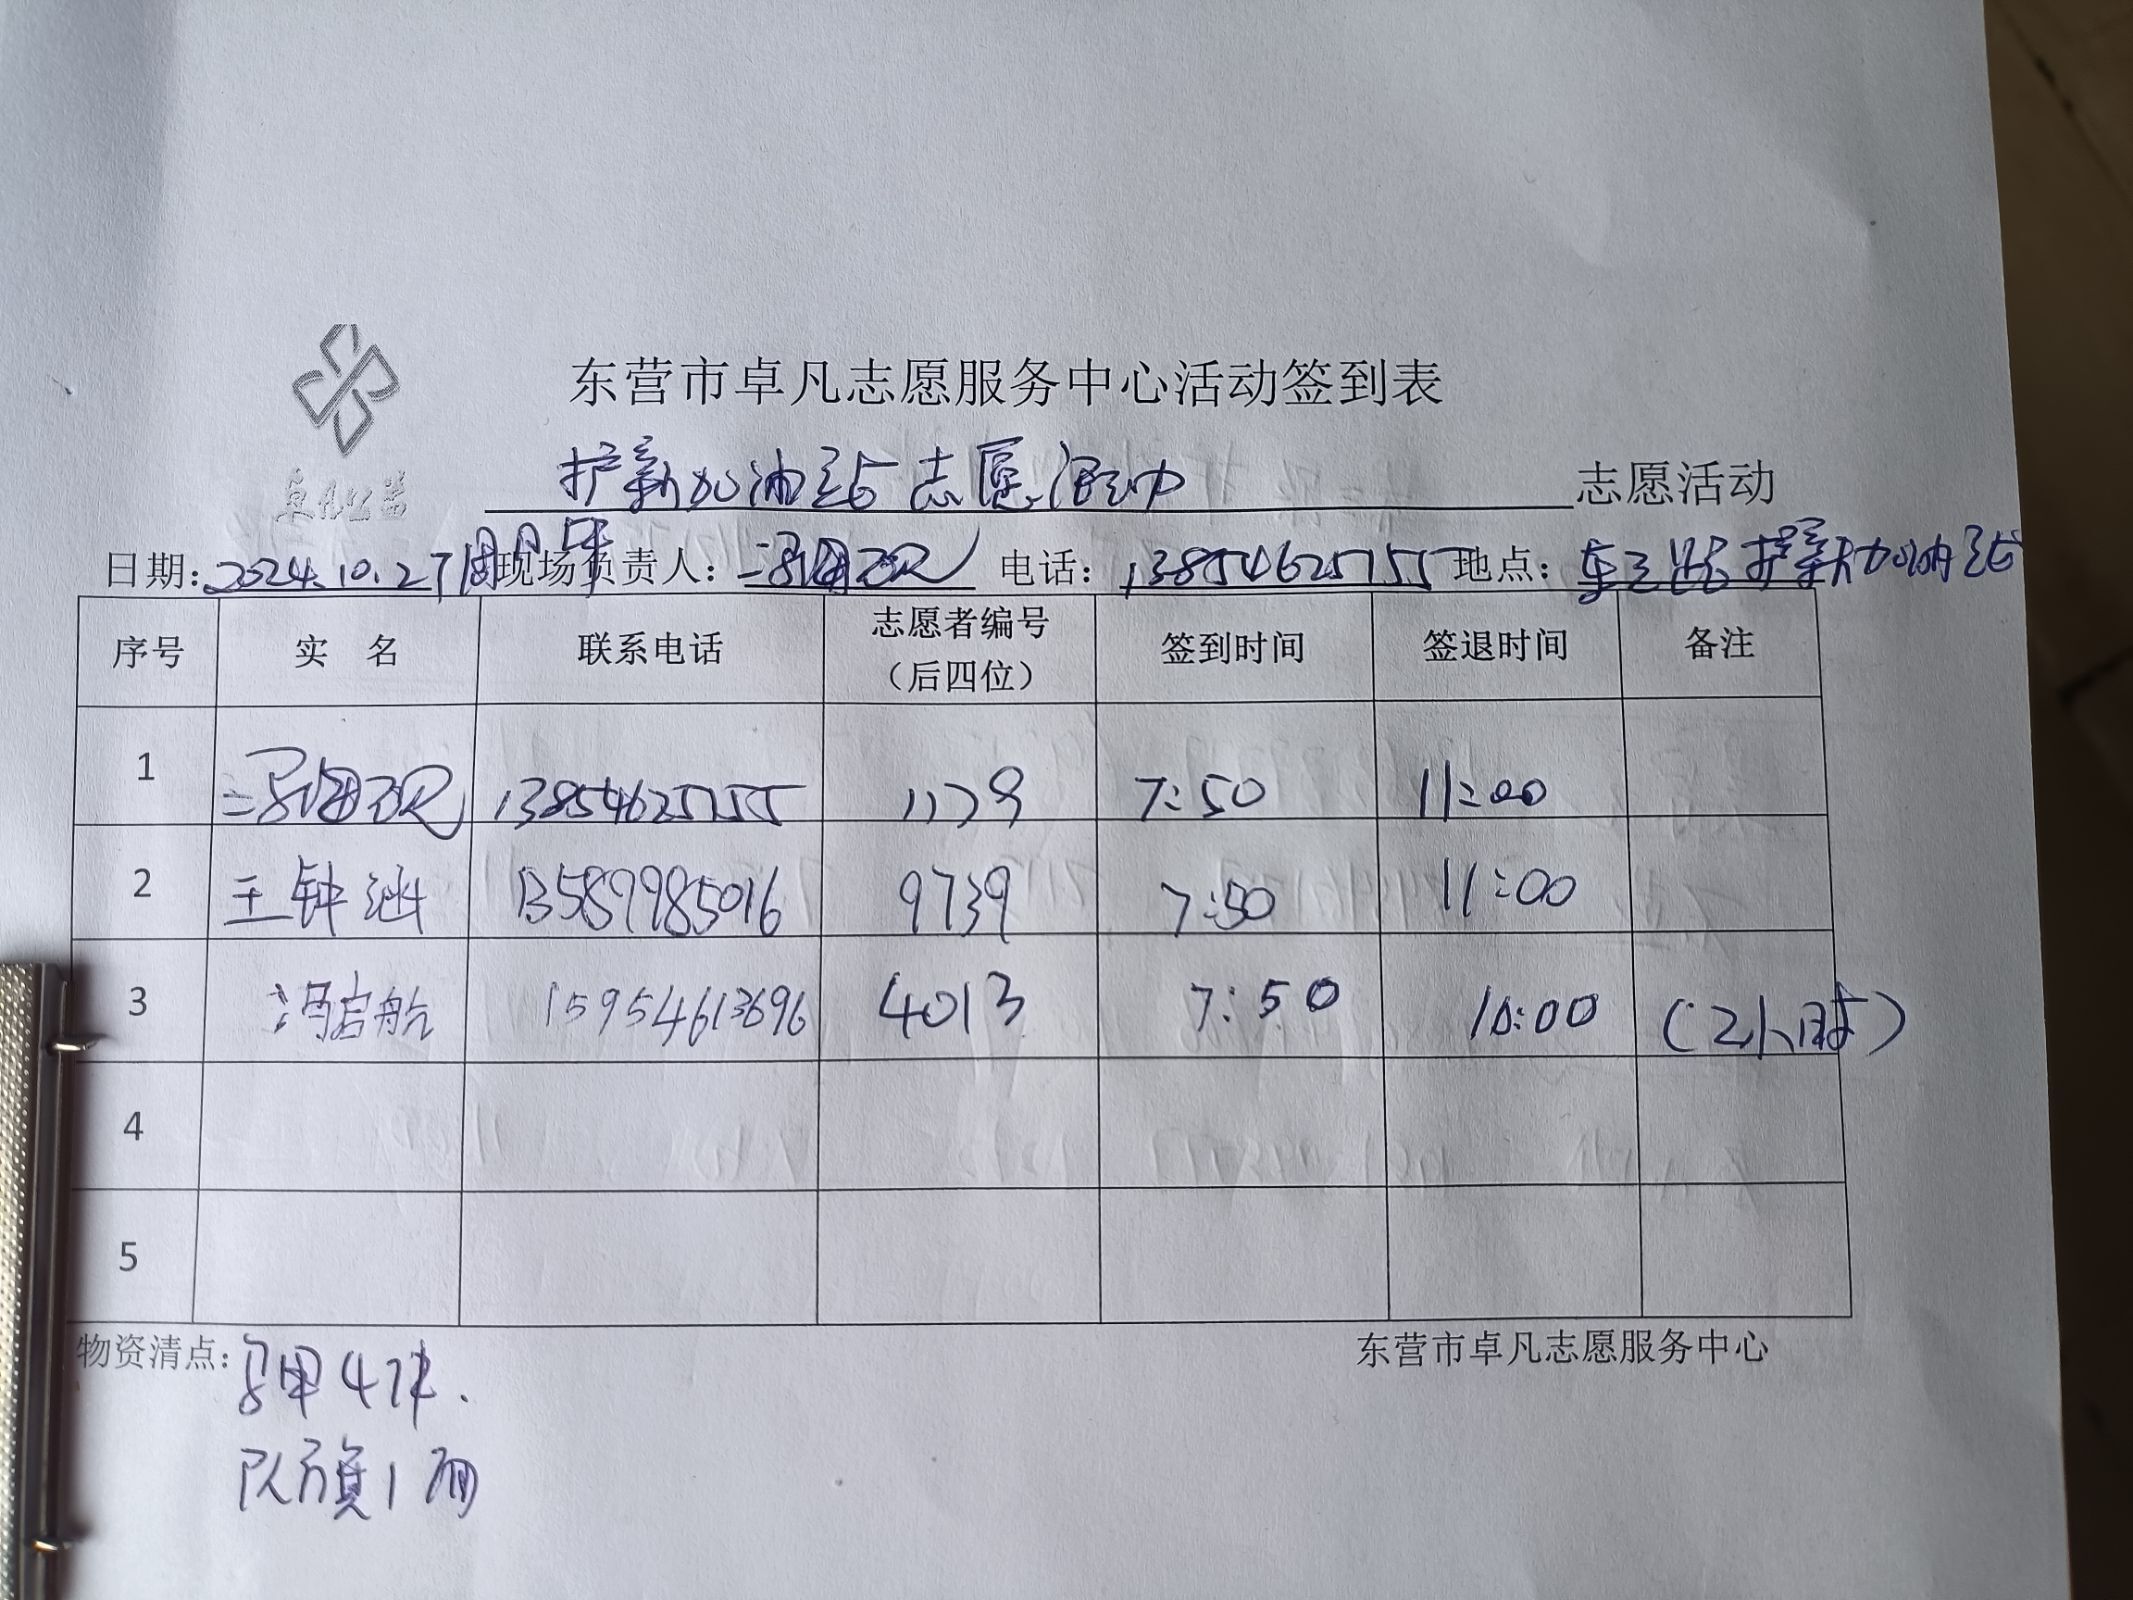 东营市卓凡志愿服务中心活动签到表
护新加油站志愿活动 志愿活动
卓凡公益
日期:2024.10.27 现场负责人: 电话:13854625755 地点:东三路护新加油站
序号 实 名 联系电话 志愿者编号(后四位) 签到时间 签退时间 备注
1 13854625755 1179 7:50 11:00
2 王钟涵 13589985016 9739 7:50 11:00
3 冯启航 15954613696 4013 7:50 10:00 (2小时)
4
5
物资清点: 马甲4件. 东营市卓凡志愿服务中心
队旗1面